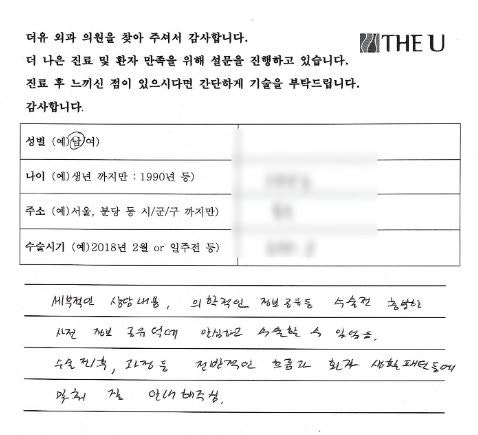 더유 외과 의원을 찾아 주셔서 감사합니다.
THE U
더 나은 진료 및 환자 만족을 위해 설문을 진행하고 있습니다.
진료 후 느끼신 점이 있으시다면 간단하게 기술을 부탁드립니다.
감사합니다.
성별 (예)남/여)
나이 (예)생년 까지만 : 1990년 등)
주소 (예)서울, 분당 등 시/군/구 까지만)
수술시기 (예)2018년 2월 or 일주전 등)
세부적인 상담내용, 의학적인 정보공유등 수술전 충분한
사전 정보 공유 덕에 안심하고 수술할 수 있었음.
수술 전/후, 과정 등 전반적인 흐름과 환자 생활패턴등에
맞춰 잘 안내해주심.